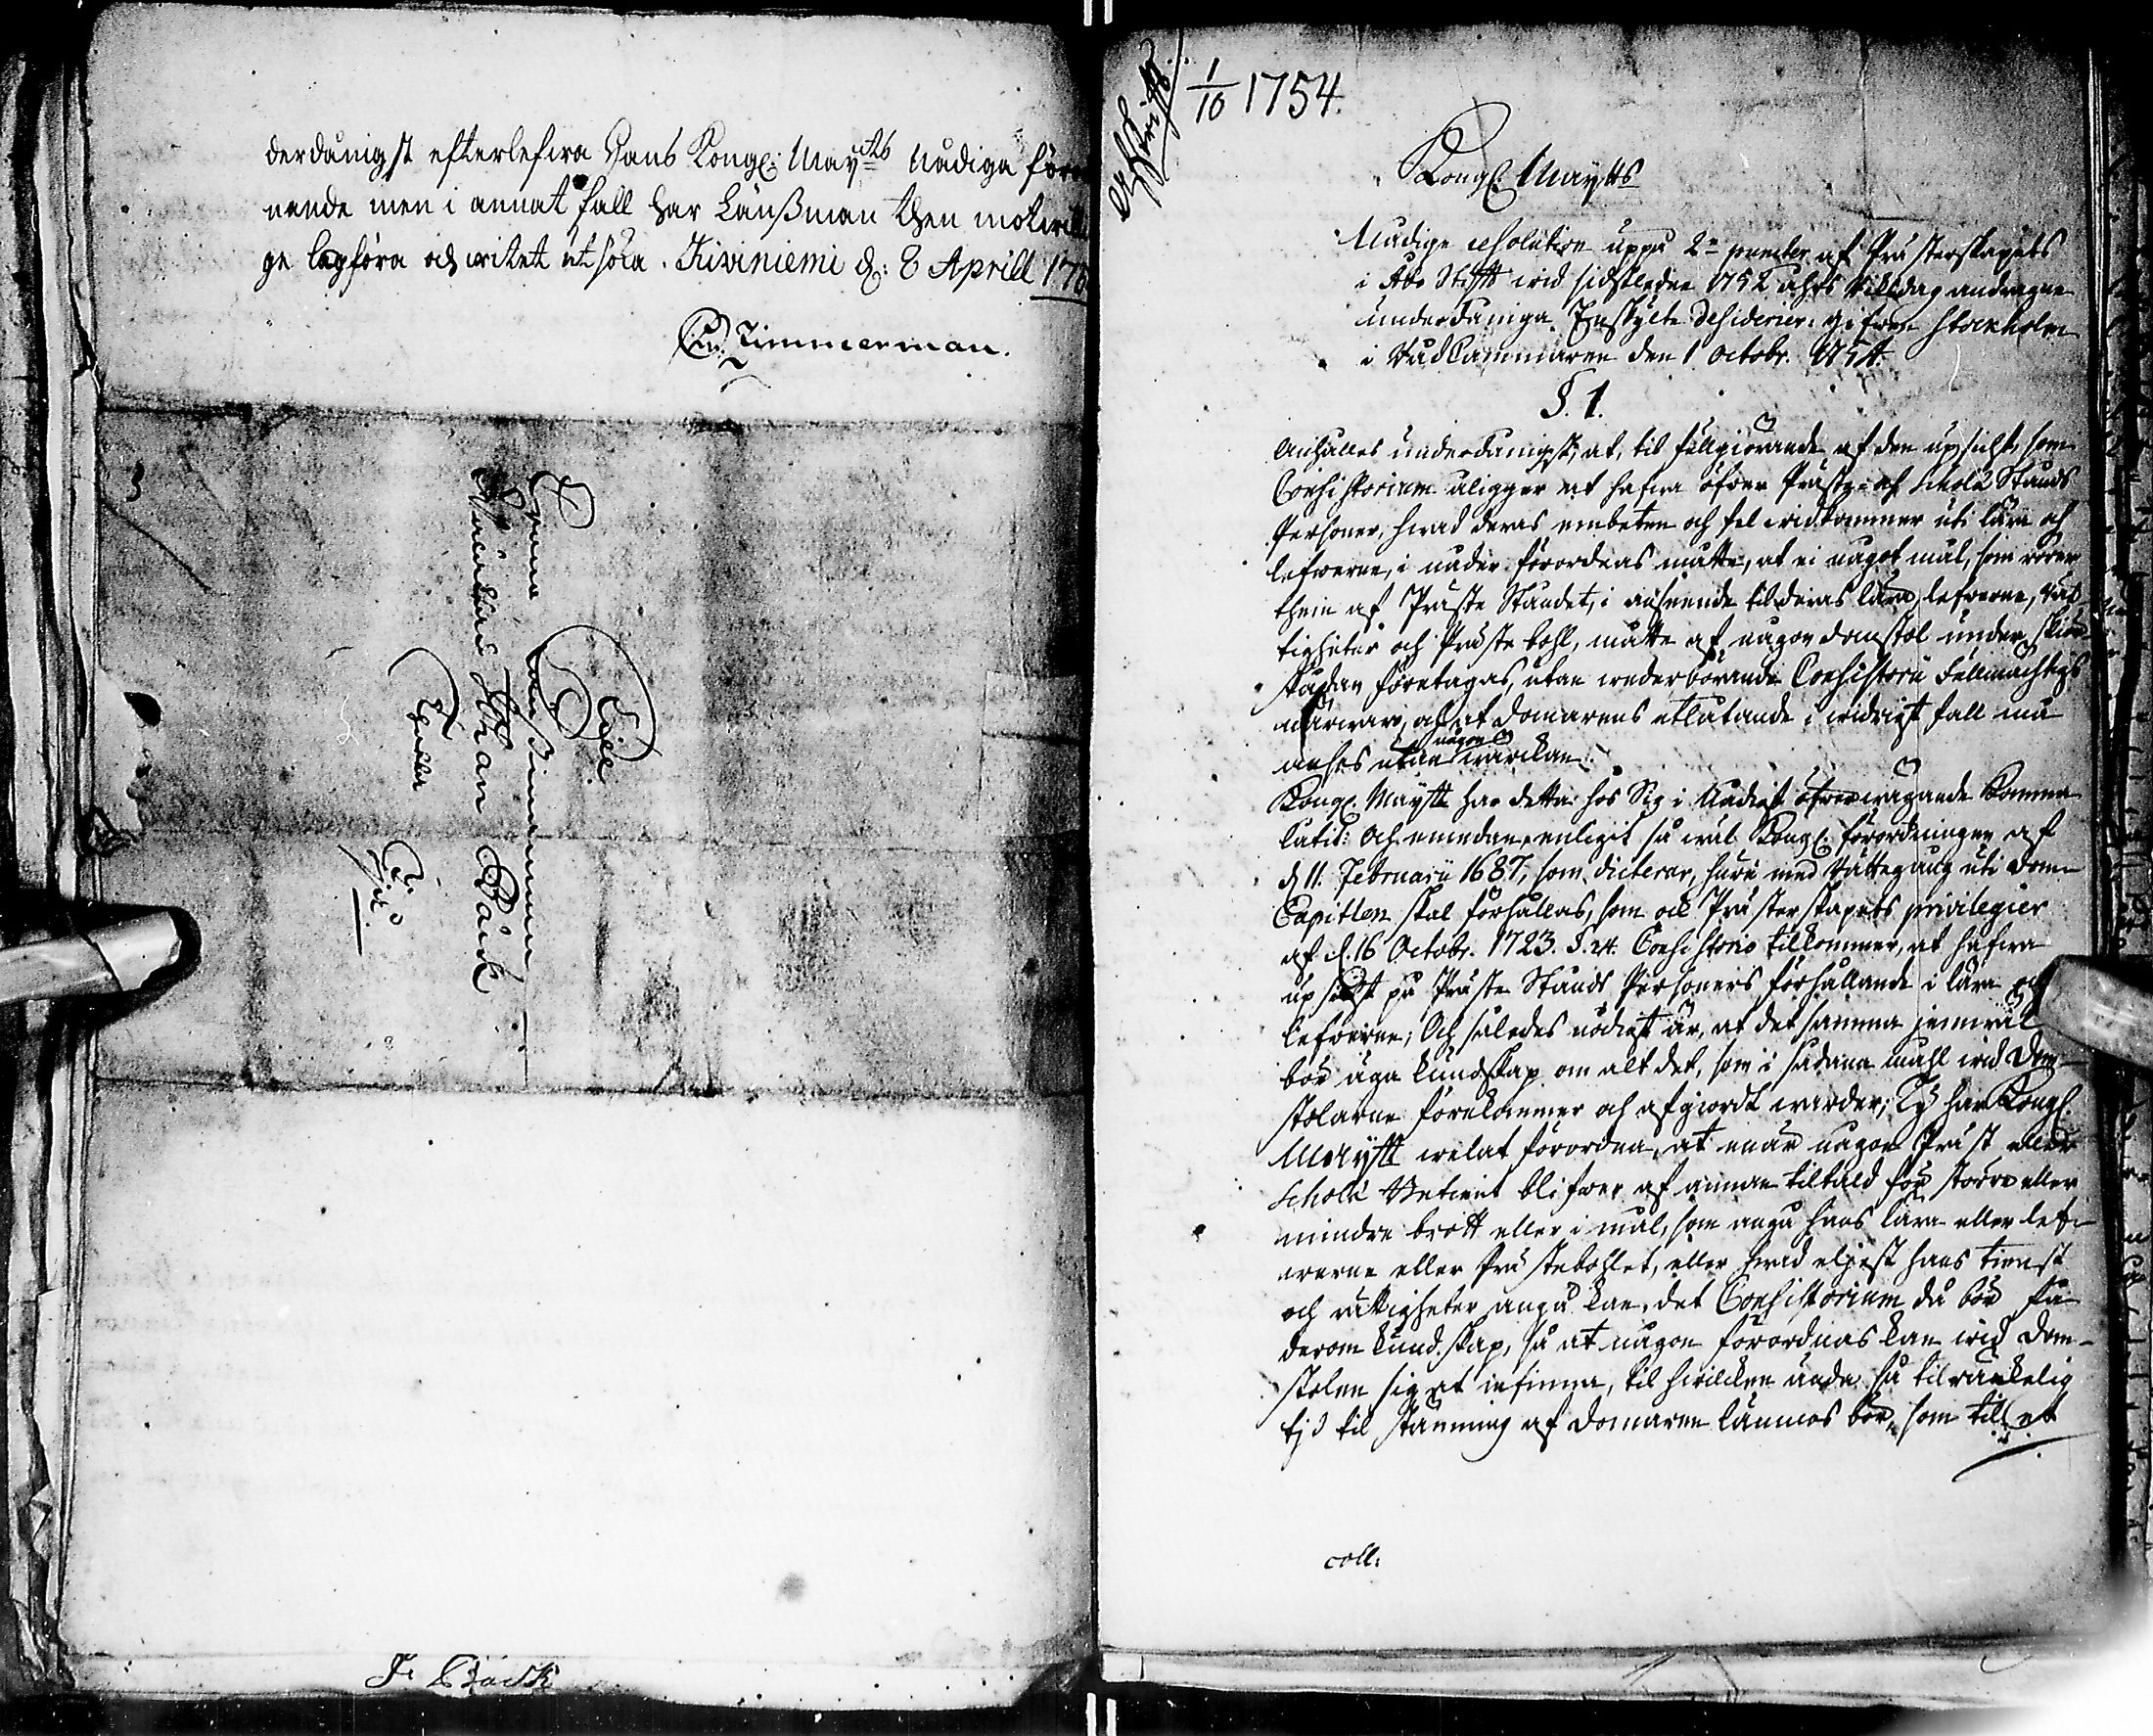 derdånigst efterlefwa Hans Kongl: May:ts Nådiga för
nande men i annat fall har Länßman then motwill
ge lagföra och witet utsöka. Kiviniemi d: 8 Aprill 17
Timmerman.
Till
Crono Länßmannen
Johan Bäck
J: Bäck
Afskrift
1/10 1754.
Kongl. Mayts
Nådige resolution uppå 2ne puncter af Prästerskapets
i Åbo Stift wid sidstledne 1752 åhrs Riksdag andragne
underdåniga Enskylte Desiderier: gifwen Stockholm
i RådCammaren den 1 Octobr. 1754.
§. 1.
Anhålles underdånigst, at, til fullgiörande af den upsicht, som
Consistorium åligger at hafwa öfwer Präste- och Schole Stånds
Personer, hwad deras embeten och fel widkommer uti lära och
lefwerne, i nåder förordnas måtte, at ei något mål, som rörer
them af Präste Ståndet, i anseende til deras lära, lefwerne, rät-
tigheter och Präste bohl, måtte af någon domstol under skiär-
skådan företagas, utan wederbörande Consistorii Fullmächtigs
närwaro, och at domarens utlåtande i widrigt fall må
anses utan någon wärckan.
Kongl. Maytt har detta hos Sig i Nådigt öfwerwägande komma
låtit: Och emedan, enligit så wäl Kongl. förordningen af
d. 11. Februarii 1687, som dicterar, huru med Rättegång uti Dom-
Capitlen skal förhållas, som ock Prästerskapets privilegier
af d. 16 Octobr. 1723. §. 24. Consistorio tilkommer, at hafwa
upsicht på Präste Stånds Personers förhållande i lära och
lefwerne; Och således nödigt är, at det samma jemwäl
bör äga kundskap om alt det, som i sådana mahl wid Dom-
stolarne förekommer och afgiordt warder; Ty har Kongl.
Maytt welat förordna, at enär någon Präst eller
Schole Betient blifwer af annan tiltald för större eller
mindre brott eller i mål, som angå hans lära eller lef-
werne eller Prästebohlet, eller hwad eljest hans tienst
och rättigheter angå kan, det Consistorium då bör få
derom kundskap, så at någon förordnas kan wid Dom-
stolen sig at infinna, til hwilcken ända så tilräckelig
tid til stämning af Domaren lämnas bör, som til et
coll: